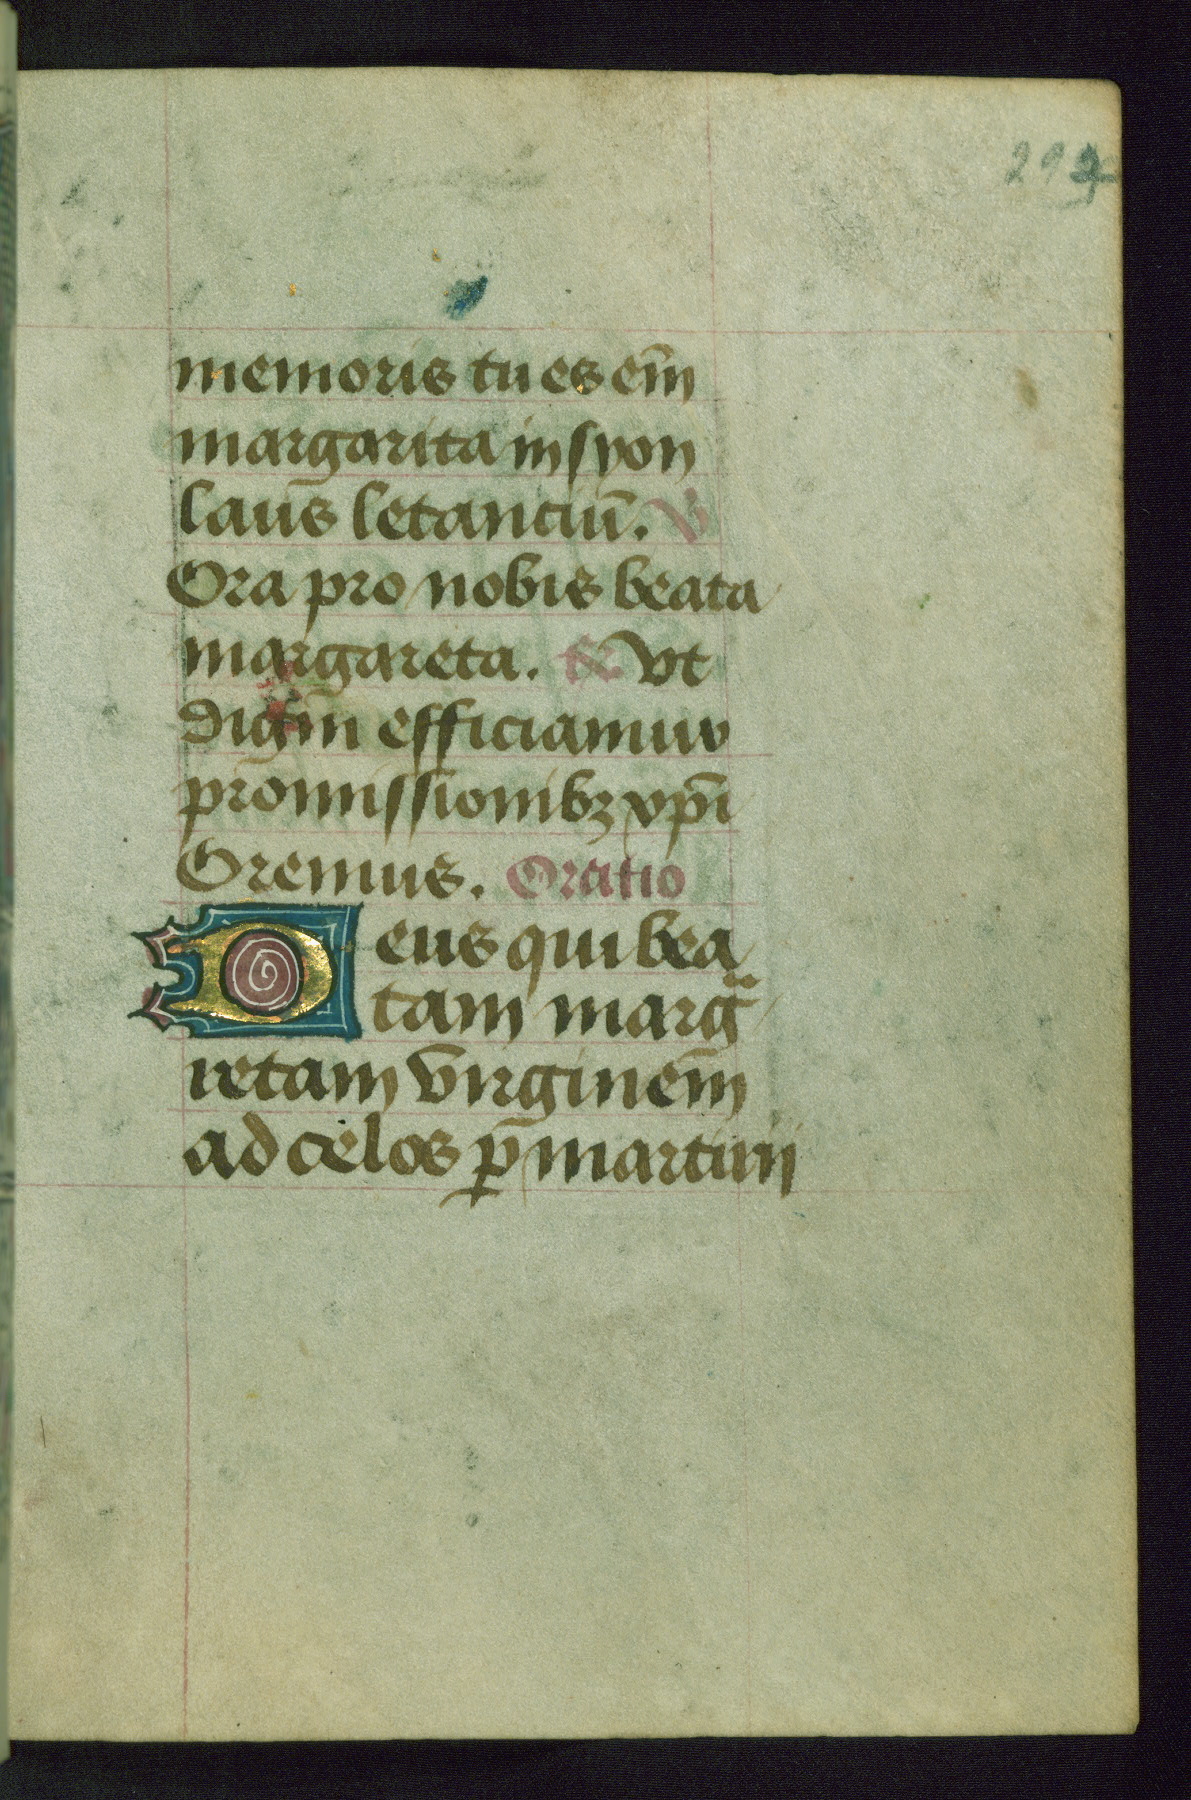 292
memoris tu es em̄
margarita in syon
laus letanciū. V
Ora pro nobis beata
margareta. R Vt
digni efficiamur
promissionibꝫ xp̄i
Oremus. Oratio
Deus qui bea
tam marg
retam virginem
ad celos p̄ martirij